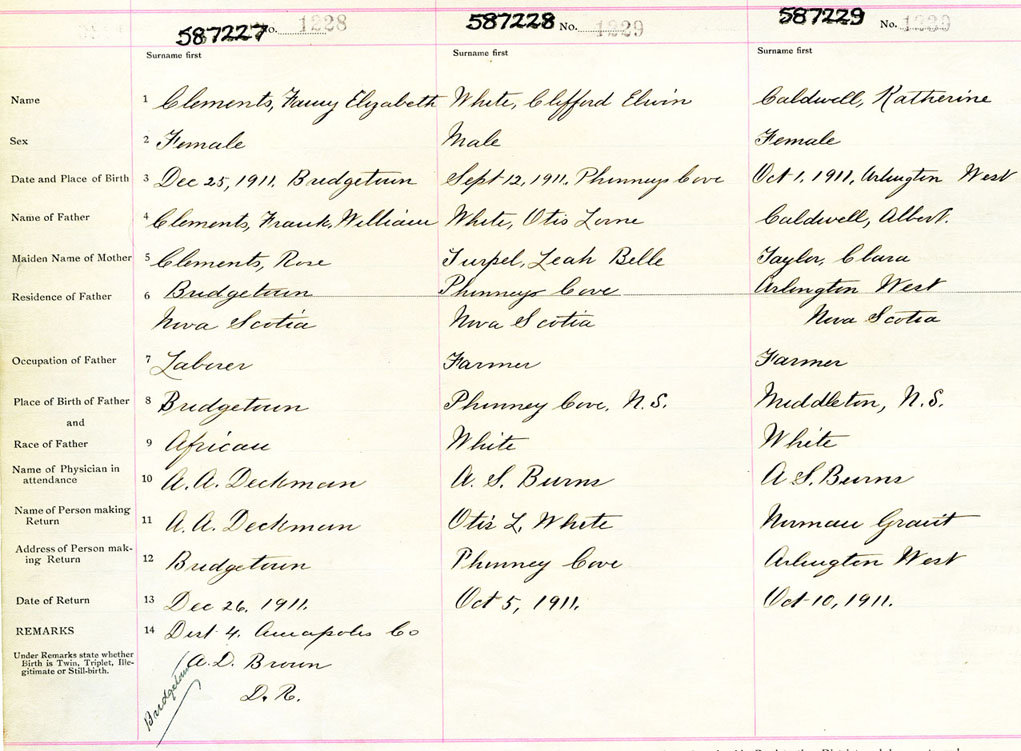 587227 No. 1228 587228 No. 1229 587229 No. 1230
Surname first Surname first Surname first
Name 1 Clements, Fanny Elizabeth White, Clifford Elwin Caldwell, Katherine
Sex 2 Female Male Female
Date and Place of Birth 3 Dec 25, 1911. Bridgetown Sept 12, 1911. Phinneys Cove Oct 1, 1911, Arlington West
Name of Father 4 Clements, Frank, William White, Otis Lorne Caldwell, Albert.
Maiden Name of Mother 5 Clements, Rose Turpel, Leah Belle Taylor, Clara
Residence of Father 6 Bridgetown Phinneys Cove Arlington West
Nova Scotia Nova Scotia Nova Scotia
Occupation of Father 7 Laborer Farmer Farmer
Place of Birth of Father 8 Bridgetown Phinney Cove, N.S. Middleton, N.S.
and
Race of Father 9 African White White
Name of Physician in
attendance 10 A. A. Deckman A. S. Burns A S. Burns
Name of Person making
Return 11 A. A. Deckman Otis L. White Norman Grant
Address of Person mak-
ing Return 12 Bridgetown Phinney Cove Arlington West
Date of Return 13 Dec 26, 1911. Oct 5, 1911. Oct 10, 1911.
REMARKS 14 Dist 4. Annapolis Co
Under Remarks state whether
Birth is Twin, Triplet, Ille-
gitimate or Still-birth.
A. D. Brown
D. R.
Bridgetown